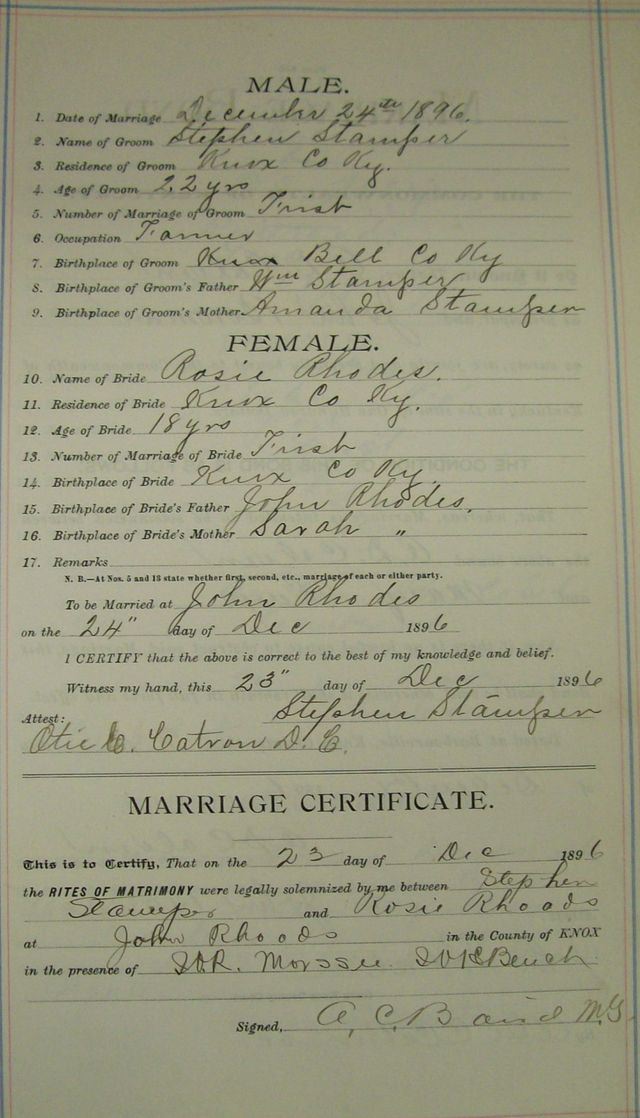 MALE.
1. Date of Marriage December 24th 1896.
2. Name of Groom Stephen Stamper
3. Residence of Groom Knox Co Ky.
4. Age of Groom 22 yrs
5. Number of Marriage of Groom First
6. Occupation Farmer
7. Birthplace of Groom Knox Bell Co Ky
8. Birthplace of Groom's Father Wm Stamper
9. Birthplace of Groom's Mother Amanda Stamper
FEMALE.
10. Name of Bride Rosie Rhodes.
11. Residence of Bride Knox Co Ky.
12. Age of Bride 18 yrs
13. Number of Marriage of Bride First
14. Birthplace of Bride Knox Co Ky
15. Birthplace of Bride's Father John Rhodes.
16. Birthplace of Bride's Mother Sarah "
17. Remarks
N. B.—At Nos. 5 and 13 state whether first, second, etc., marriage of each or either party.
To be Married at John Rhodes
on the 24" day of Dec 1896
I CERTIFY that the above is correct to the best of my knowledge and belief.
Witness my hand, this 23" day of Dec 1896
Stephen Stamper
Attest:
Catron D. C.
MARRIAGE CERTIFICATE.
This is to Certify, That on the 23 day of Dec 1896
the RITES OF MATRIMONY were legally solemnized by me between Stephen
Stamper and Rosie Rhoads
at John Rhoods in the County of KNOX
in the presence of
Signed, A, C,